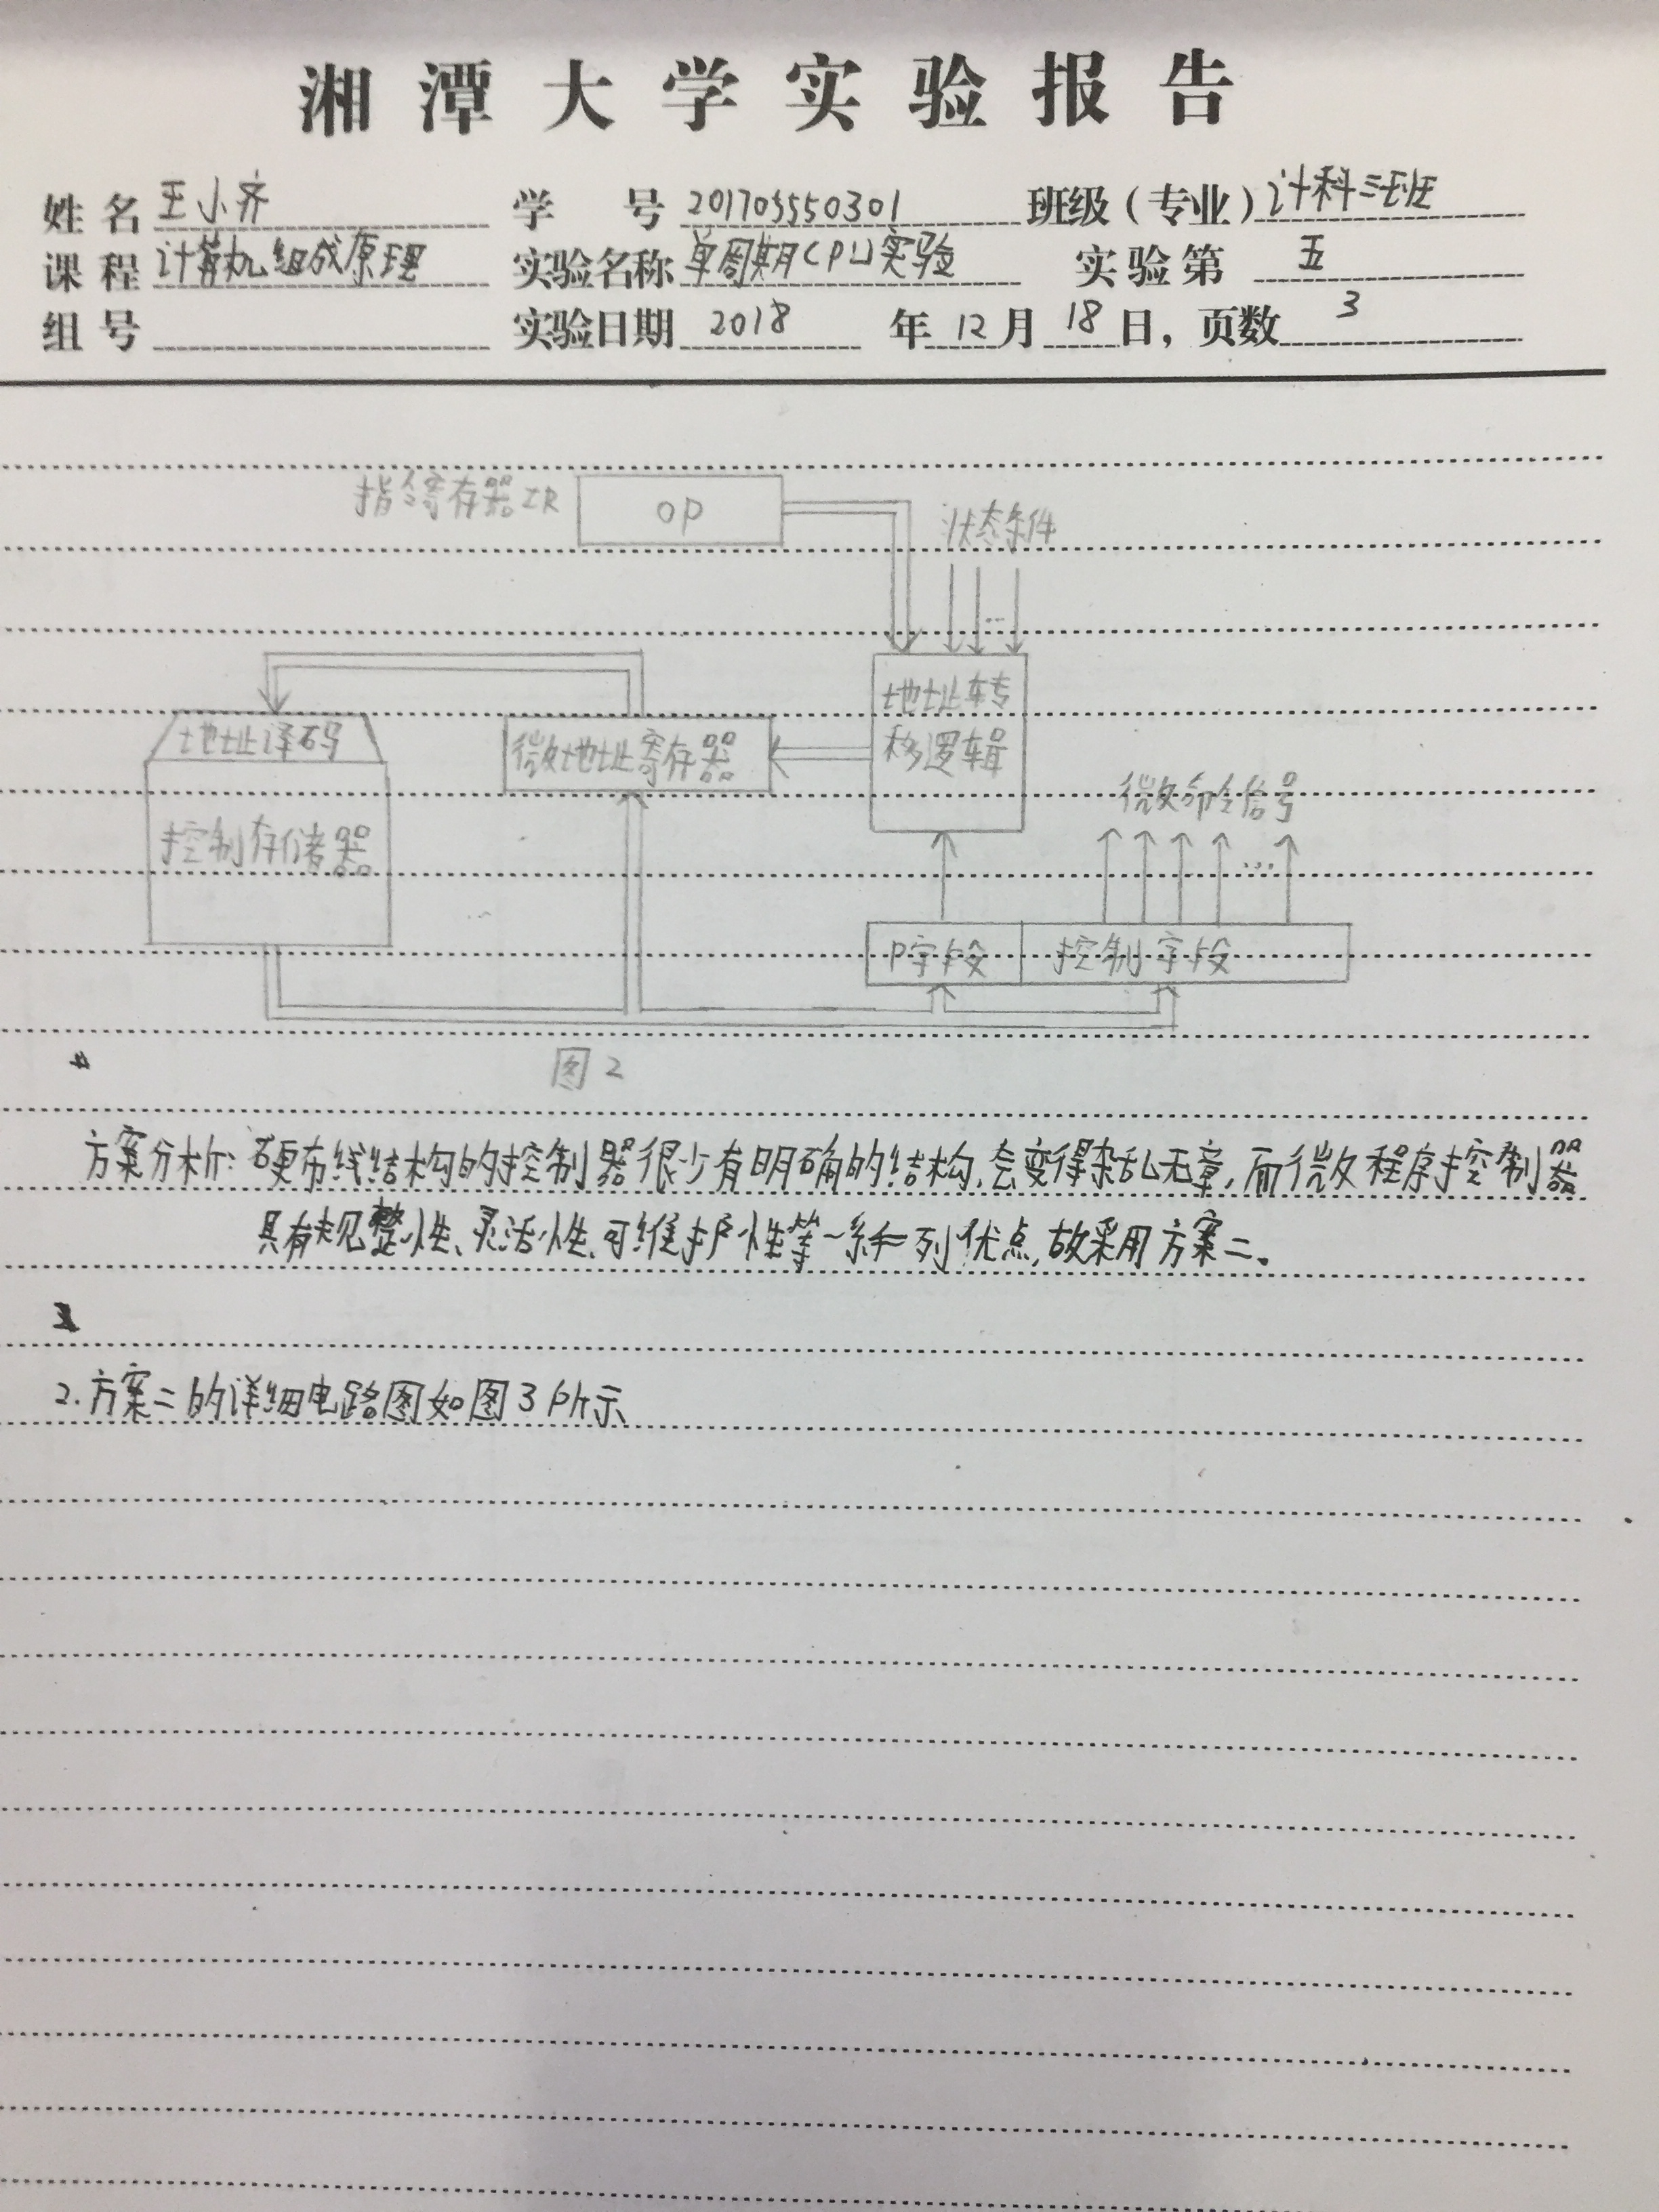 湘潭大学实验报告
姓名 王小齐 学号 201705550301 班级(专业) 计科三班
课程 计算机组成原理 实验名称 单周期CPU实验 实验第 五
组号 实验日期 2018 年 12 月 18 日, 页数 3
指令寄存器IR OP 状态条件
...
地址转
移逻辑
地址译码 微地址寄存器
微命令信号
控制存储器
...
P字段 控制字段
图2
方案分析: 硬布线结构的控制器很少有明确的结构,会变得杂乱无章,而微程序控制器
具有规整性、灵活性、可维护性等一系列优点,故采用方案二。
2.方案二的详细电路图如图3所示